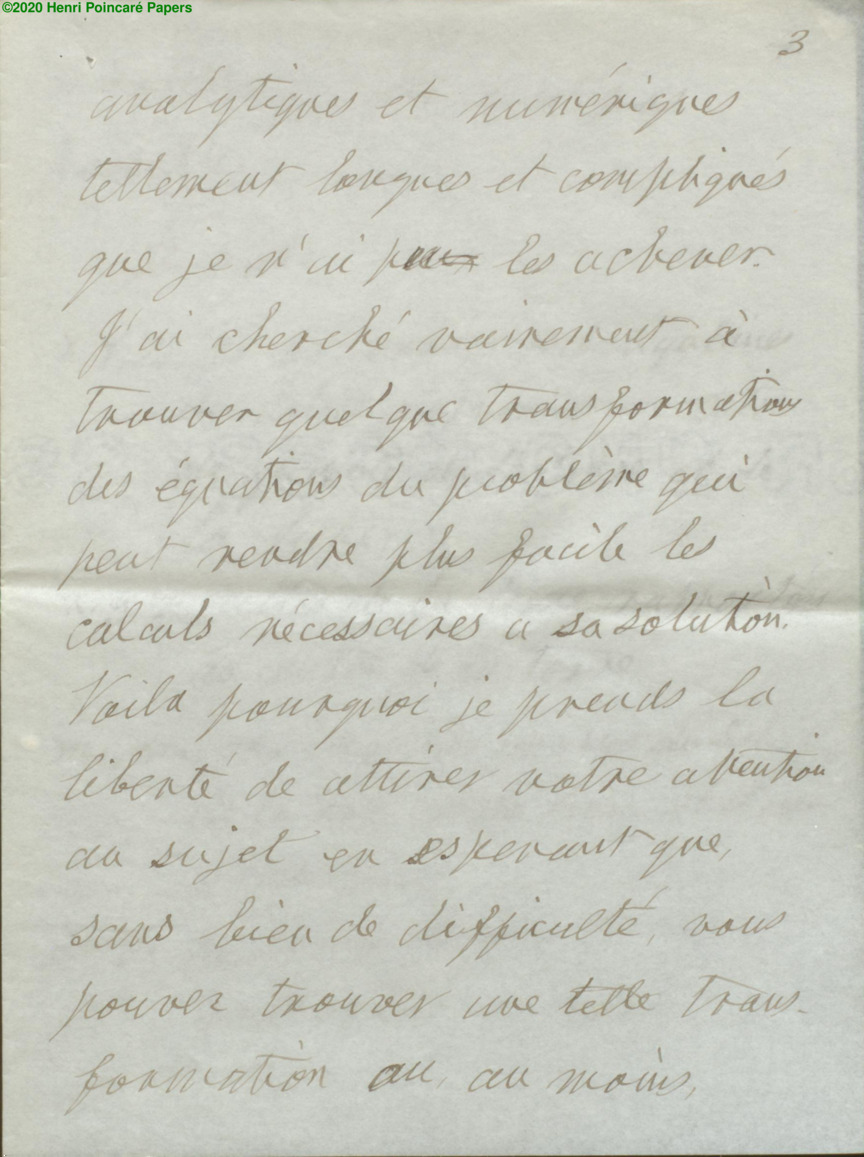 ©2020 Henri Poincaré Papers
3
analytiques et numériques
tellement longues et compliqués
que je n'ai les achever.
J'ai cherché vainement à
trouver quelque transformations
des équations du problème qui
peut rendre plus facile les
calculs nécessaires a sa solution.
Voila pourquoi je prends la
liberté de attirer votre attention
au sujet en esperant que,
sans bien de difficulté, vous
pouvez trouver une telle trans-
formation ou, au moins,